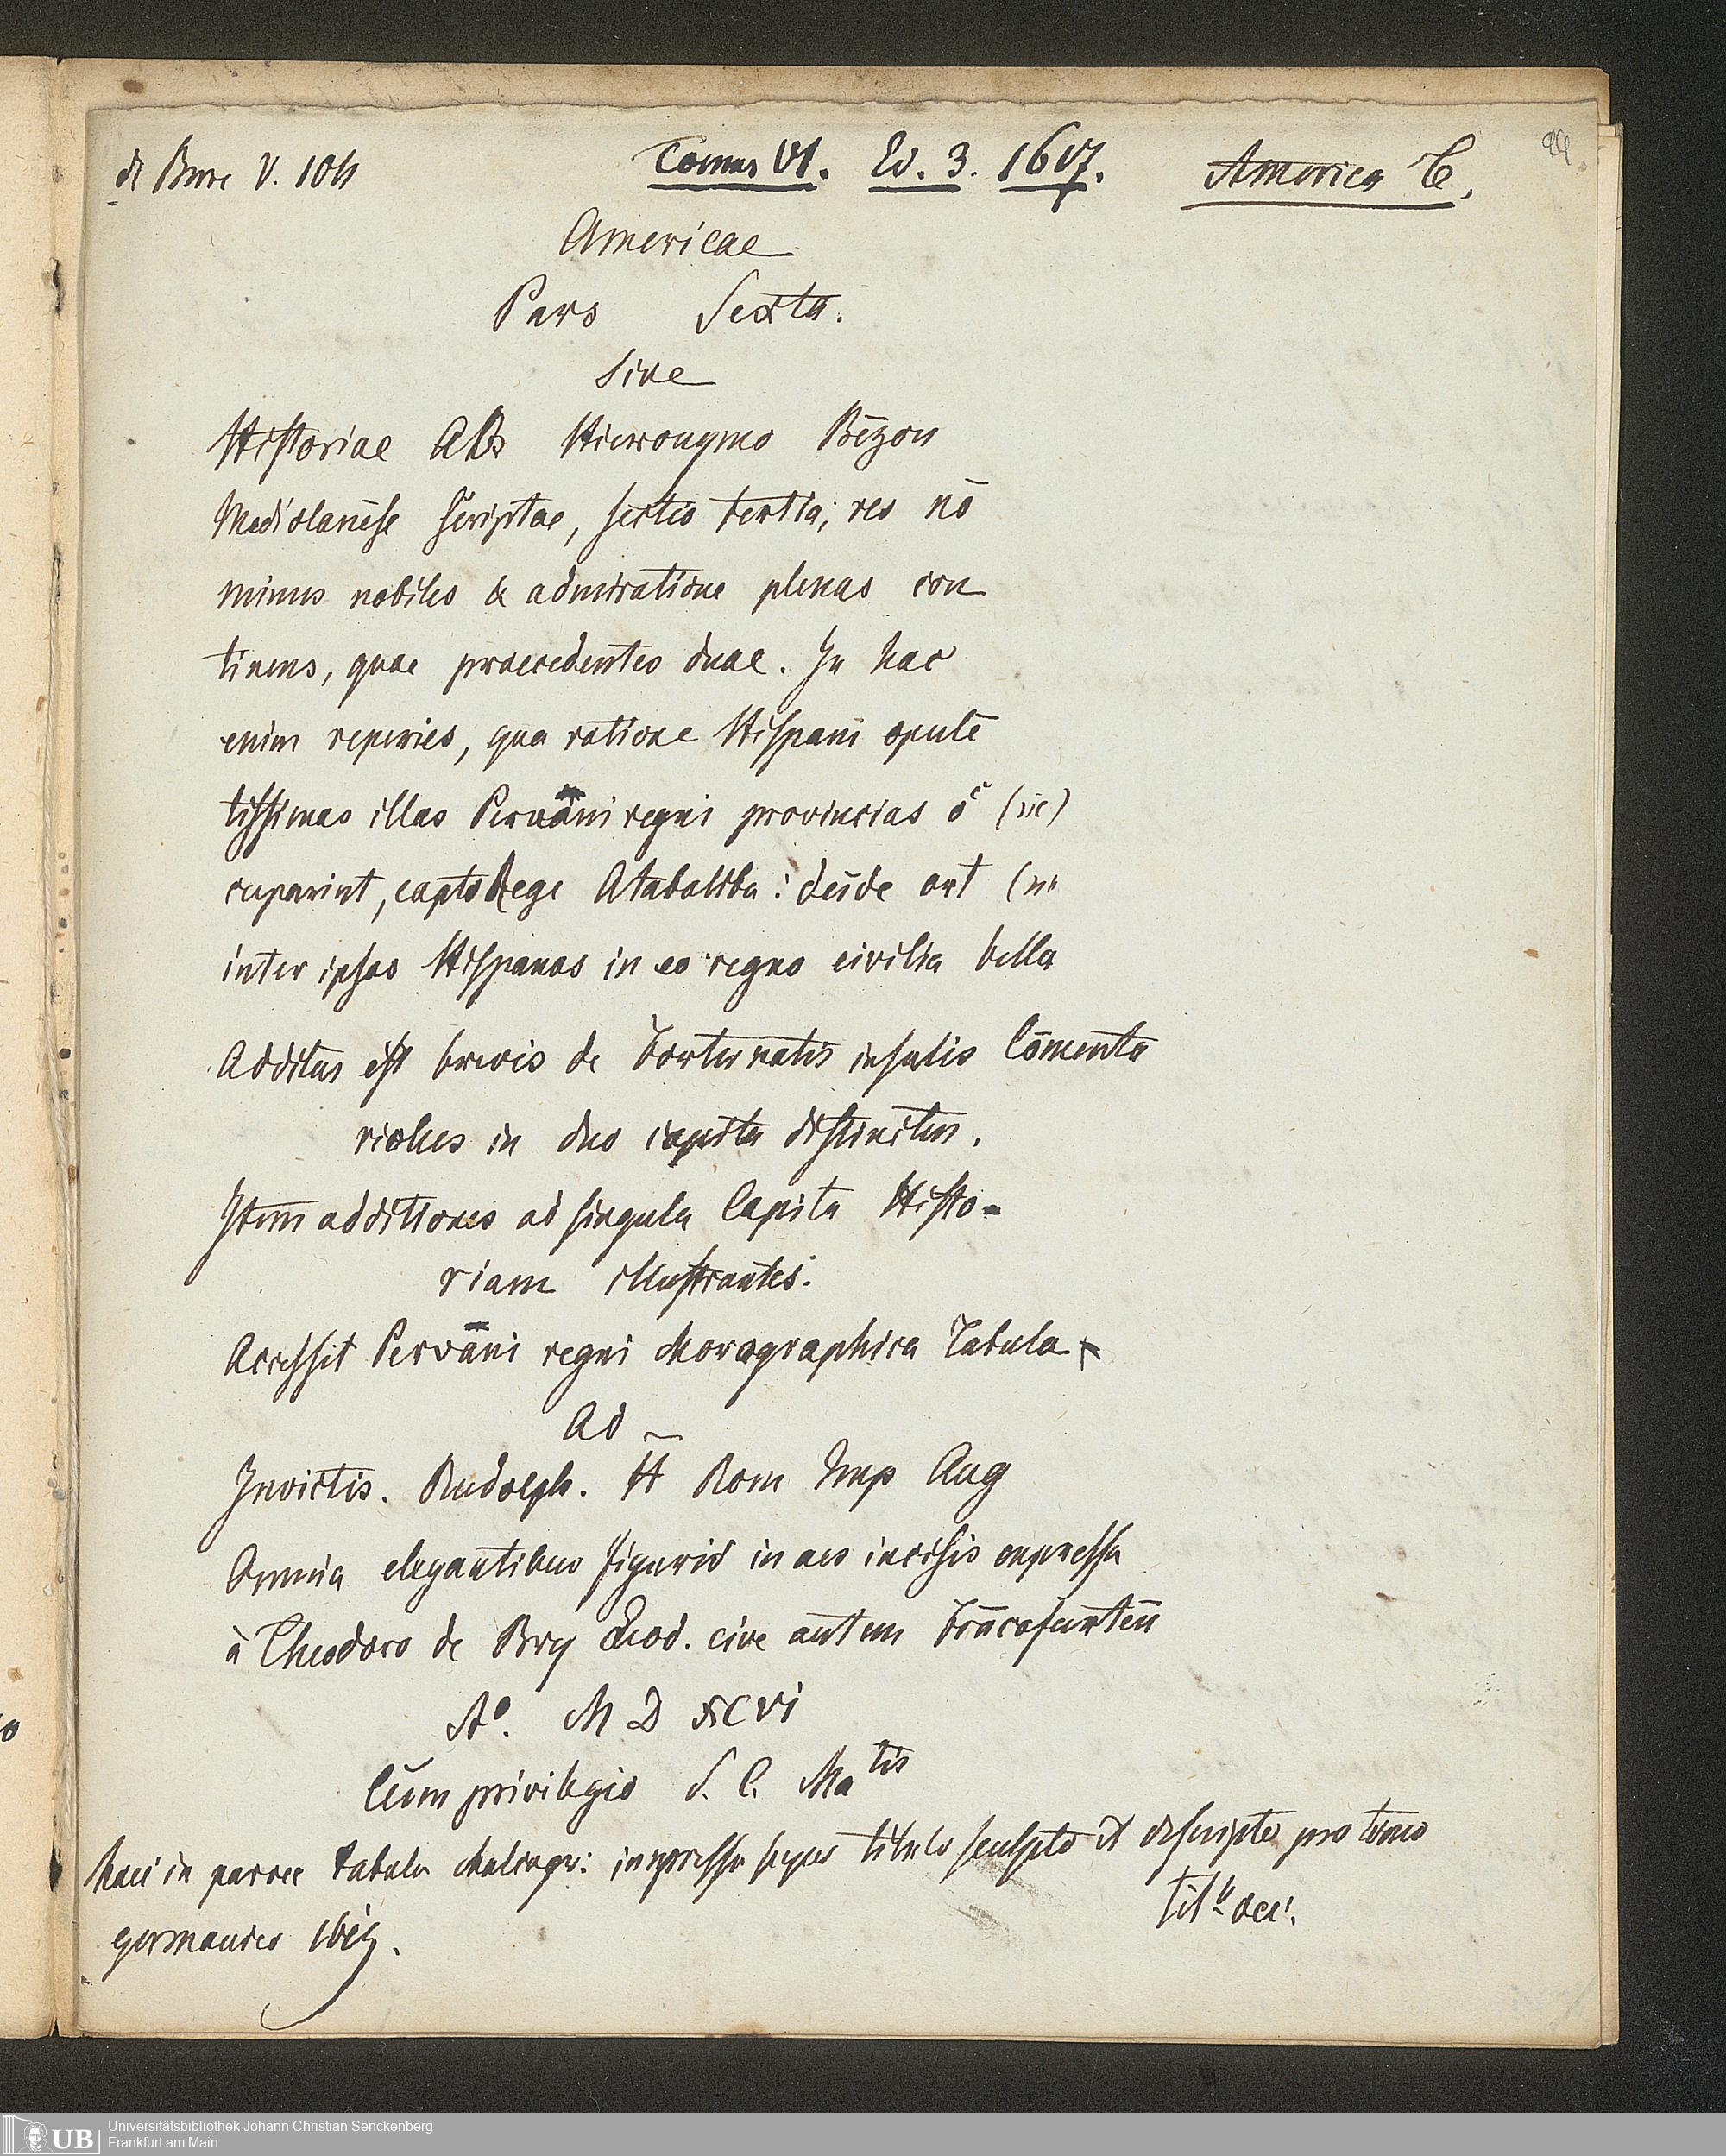 de Bure V. 104
Tomus VI. Ed. 3. 1617.
America C.
Americae
Pars Sexta.
Sive
Historiae AB Hieronymo Bēzon
Mediolanēse scriptae, sectio tertia, res nō
minus nobiles & admiratione plenas con
tinens, quae praecedentes duae. In hac
enim reperies, qua ratione Hispani opulē
tissimas illas Peruāni regni provincias oc (sic)
cuparint, capto Rege Atabaliba: deīde ort
inter ipsos Hispanos in eo regno civilia bella
Additus est brevis de Fortunatis insulis Cōmenta
riolus in duo capita distinctus.
Item additiones ad singula Capita Histo-
riam illustrantes.
Accessit Peruāni regni chorographica Tabula
Ad
Invictis. Rudolph. II Rom Imp Aug
Omnia elegantibus figuris in aes incisis expressa
à Theodoro de Bry Leod. cive autem Frācofurten
Aº. M D XCVI
Cum privilegio S. C. Matis
Haec in parvee tabula chalcogr: impressa super titulo sculpto et descripto pro tomo
germanico